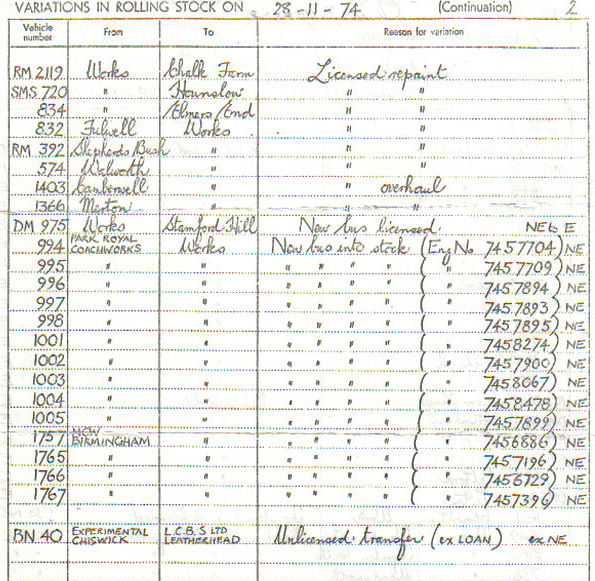 VARIATIONS IN ROLLING STOCK ON 28-11-74 (Continuation) 2
Vehicle number From To Reason for variation
RM 2119 Works Chalk Farm Licensed repaint
SMS 720 " Hounslow " "
834 " Elmers End " "
832 Fulwell Works " "
RM 392 Shepherds Bush " " "
574 Walworth " " "
1403 Camberwell " " overhaul
1366 Merton " " "
DM 975 Works Stamford Hill New bus licensed. NE to E
994 PARK ROYAL COACHWORKS Works New bus into stock (Eng No 7457704) NE
995 " " " " " " ( " 7457709) NE
996 " " " " " " ( " 7457894) NE
997 " " " " " " ( " 7457893) NE
998 " " " " " " ( " 7457895) NE
1001 " " " " " " ( " 7458274) NE
1002 " " " " " " ( " 7457900) NE
1003 " " " " " " ( " 7458067) NE
1004 " " " " " " ( " 7458478) NE
1005 " " " " " " ( " 7457899) NE
1757 MCW BIRMINGHAM " " " " " ( " 7456886) NE
1765 " " " " " " ( " 7457196) NE
1766 " " " " " " ( " 7456729) NE
1767 " " " " " " ( " 7457396) NE
BN 40 EXPERIMENTAL CHISWICK L.C.B.S LTD LEATHERHEAD Unlicensed transfer (ex LOAN) ex NE